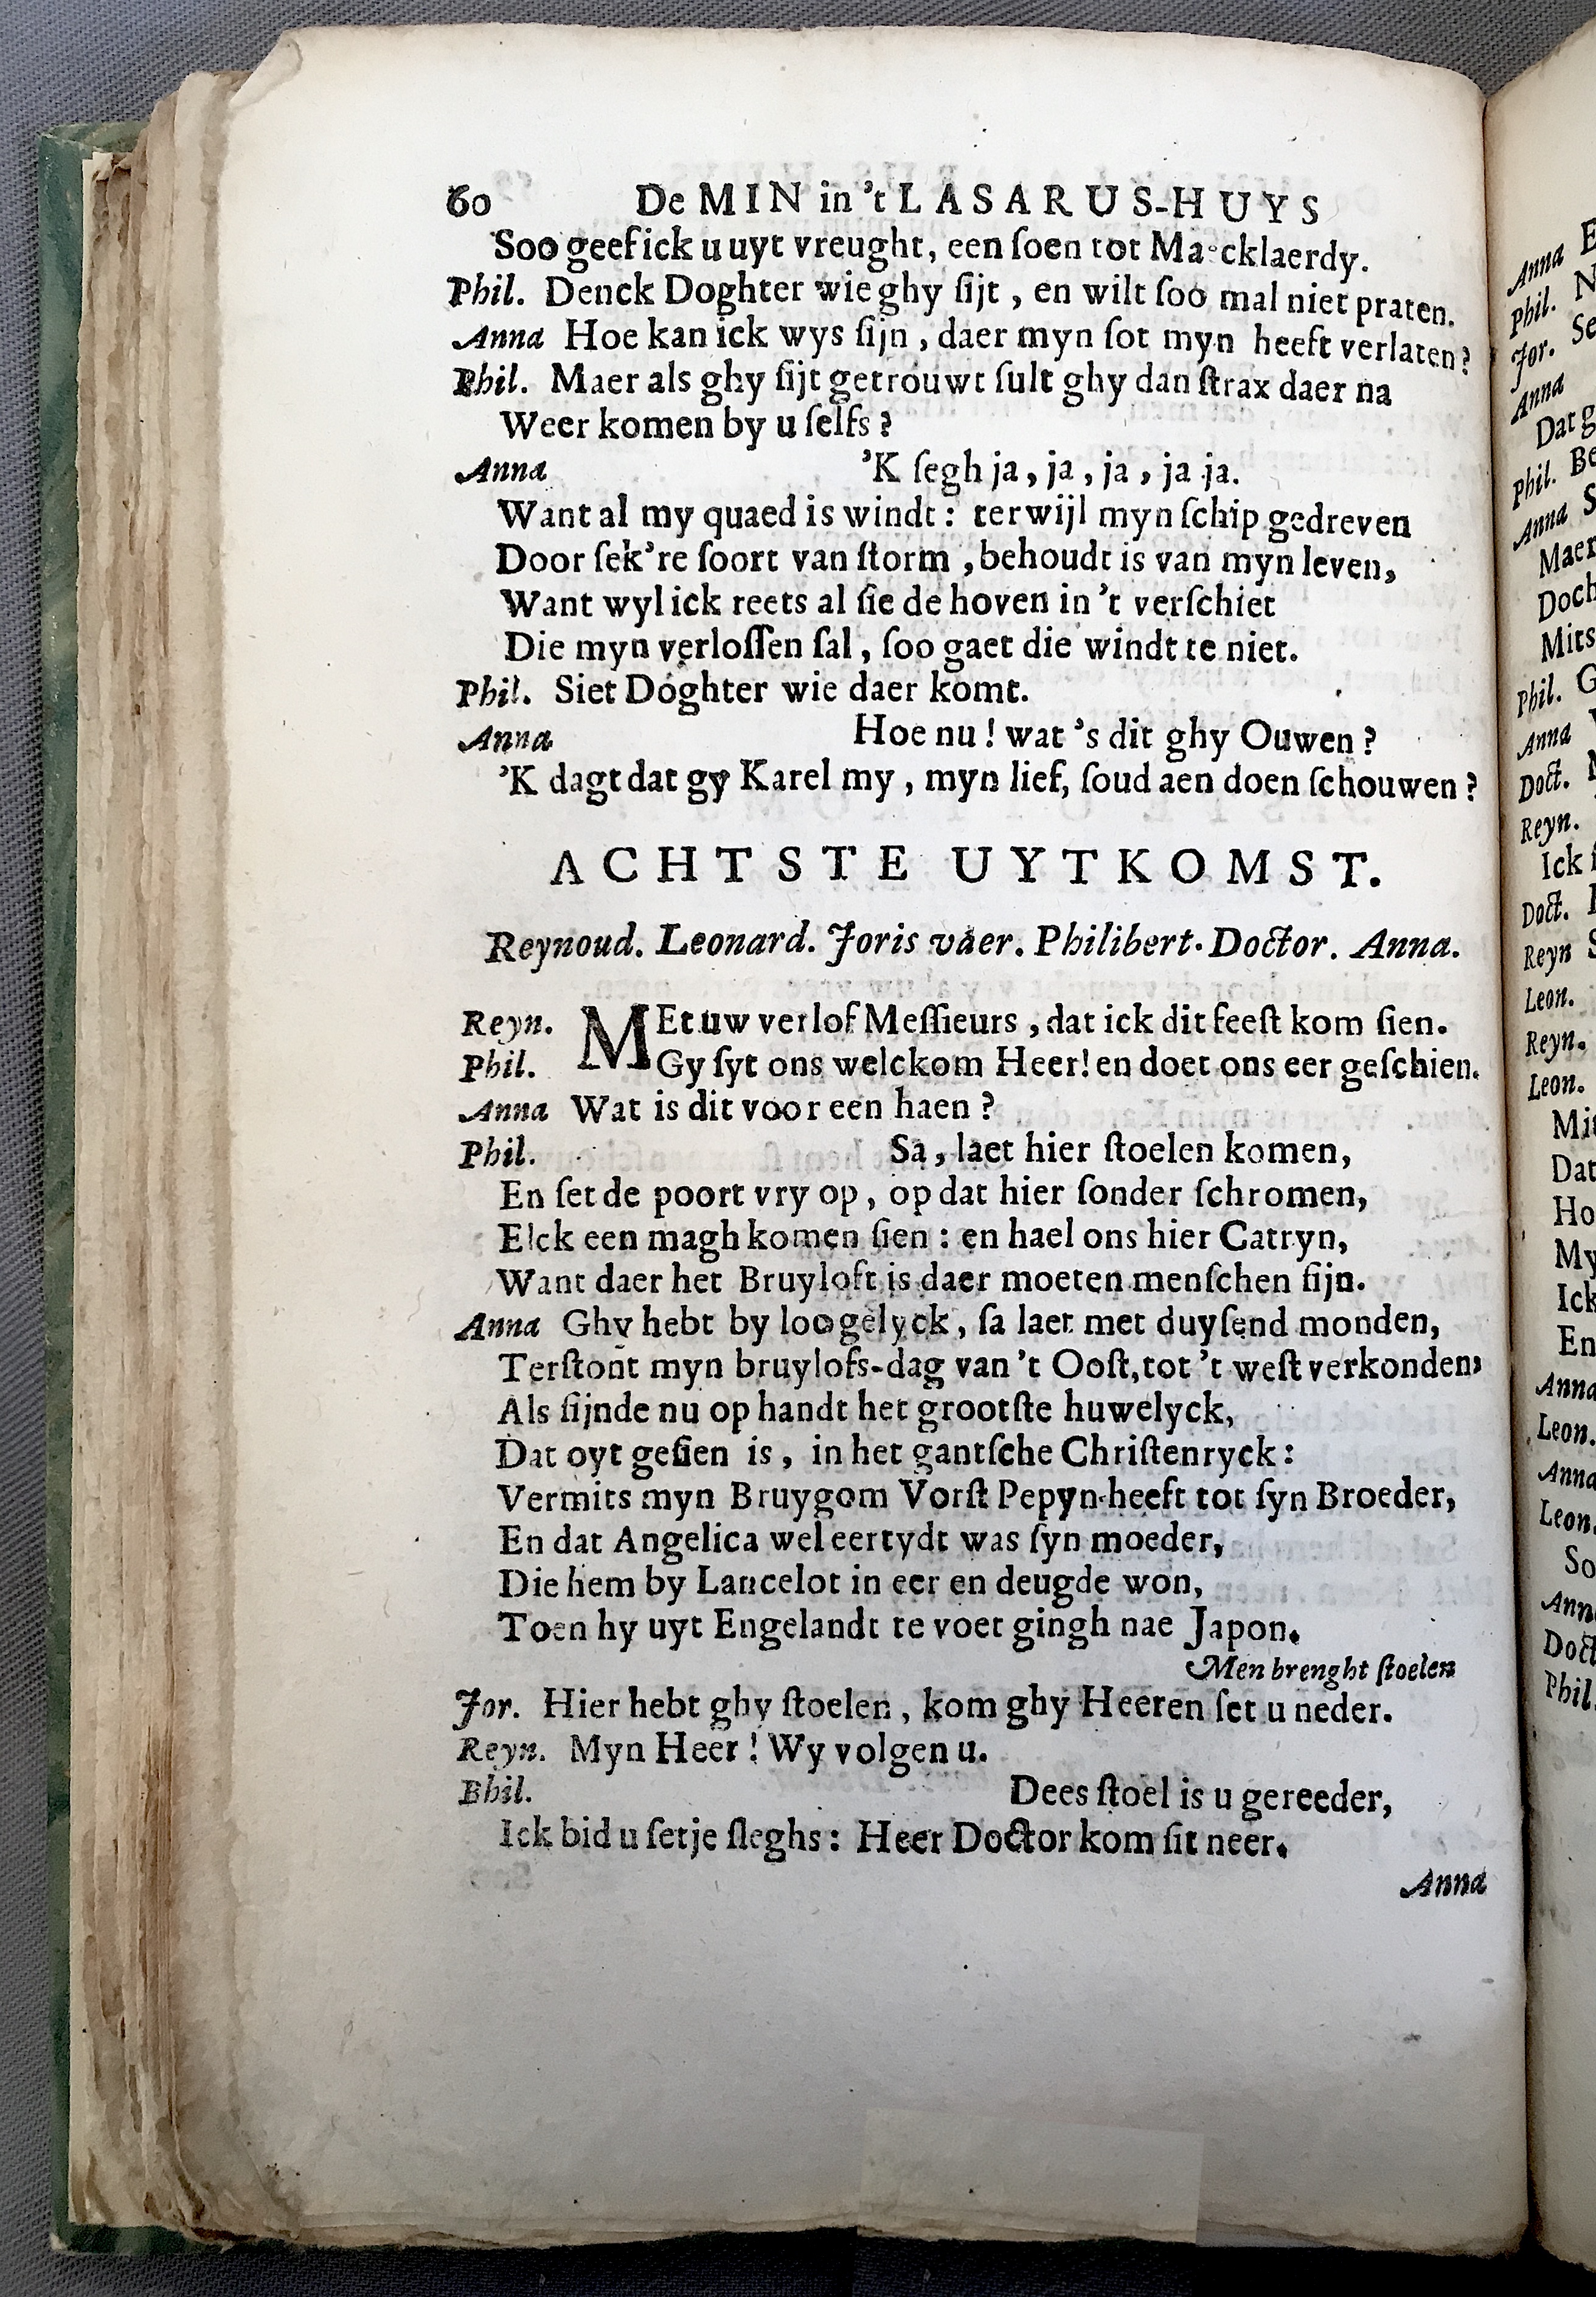 60 De MIN in 't LASARUS-HUYS
Soo geef ick u uyt vreught, een ſoen tot Ma cklaerdy.
Phil. Denck Doghter wie ghy ſijt, en wilt ſoo mal niet praten.
Anna Hoe kan ick wys ſijn, daer myn ſot myn heeft verlaten?
Phil. Maer als ghy ſijt getrouwt ſult ghy dan ſtrax daer na
Weer komen by u ſelfs?
Anna 'K ſegh ja, ja, ja, ja ja.
Want al my quaed is windt: terwijl myn ſchip gedreven
Door ſek're ſoort van ſtorm, behoudt is van myn leven,
Want wyl ick reets al ſie de hoven in 't verſchiet
Die myn verloſſen ſal, ſoo gaet die windt te niet.
Phil. Siet Doghter wie daer komt.
Anna Hoe nu! wat 's dit ghy Ouwen?
'K dagt dat gy Karel my, myn lief, ſoud aen doen ſchouwen?
ACHTSTE UYTKOMST.
Reynoud. Leonard. Joris vaer. Philibert. Doctor. Anna.
Reyn. MEt uw verlof Meſſieurs, dat ick dit feeſt kom ſien.
Phil. Gy ſyt ons welckom Heer! en doet ons eer geſchien.
Anna Wat is dit voor een haen?
Phil. Sa, laet hier ſtoelen komen,
En ſet de poort vry op, op dat hier ſonder ſchromen,
Elck een magh komen ſien: en hael ons hier Catryn,
Want daer het Bruyloft is daer moeten menſchen ſijn.
Anna Ghy hebt by loo gelyck, ſa laet met duyſend monden,
Terſtont myn bruylofs-dag van 't Ooſt, tot 't weſt verkonden,
Als ſijnde nu op handt het grootſte huwelyck,
Dat oyt geſien is, in het gantſche Chriſtenryck:
Vermits myn Bruygom Vorſt Pepyn heeft tot ſyn Broeder,
En dat Angelica wel eertydt was ſyn moeder,
Die hem by Lancelot in eer en deugde won,
Toen hy uyt Engelandt te voet gingh nae Japon.
Men brenght ſtoelen
Jor. Hier hebt ghy ſtoelen, kom ghy Heeren ſet u neder.
Reyn. Myn Heer! Wy volgen u.
Bhil. Dees ſtoel is u gereeder,
Ick bid u ſetje ſleghs: Heer Doctor kom ſit neer.
Anna
Anna
Phil.
Jor. Se
Anna
Dat g
Phil. Be
Anna S
Maer
Doch
Mits
Phil. G
Anna
Doct.
Reyn.
Ick
Doct.
Reyn
Leon.
Reyn.
Leon.
Mit
Dat
Ho
My
Ick
En
Anna
Leon.
Anna
Leon.
So
Anna
Doct
Phil.